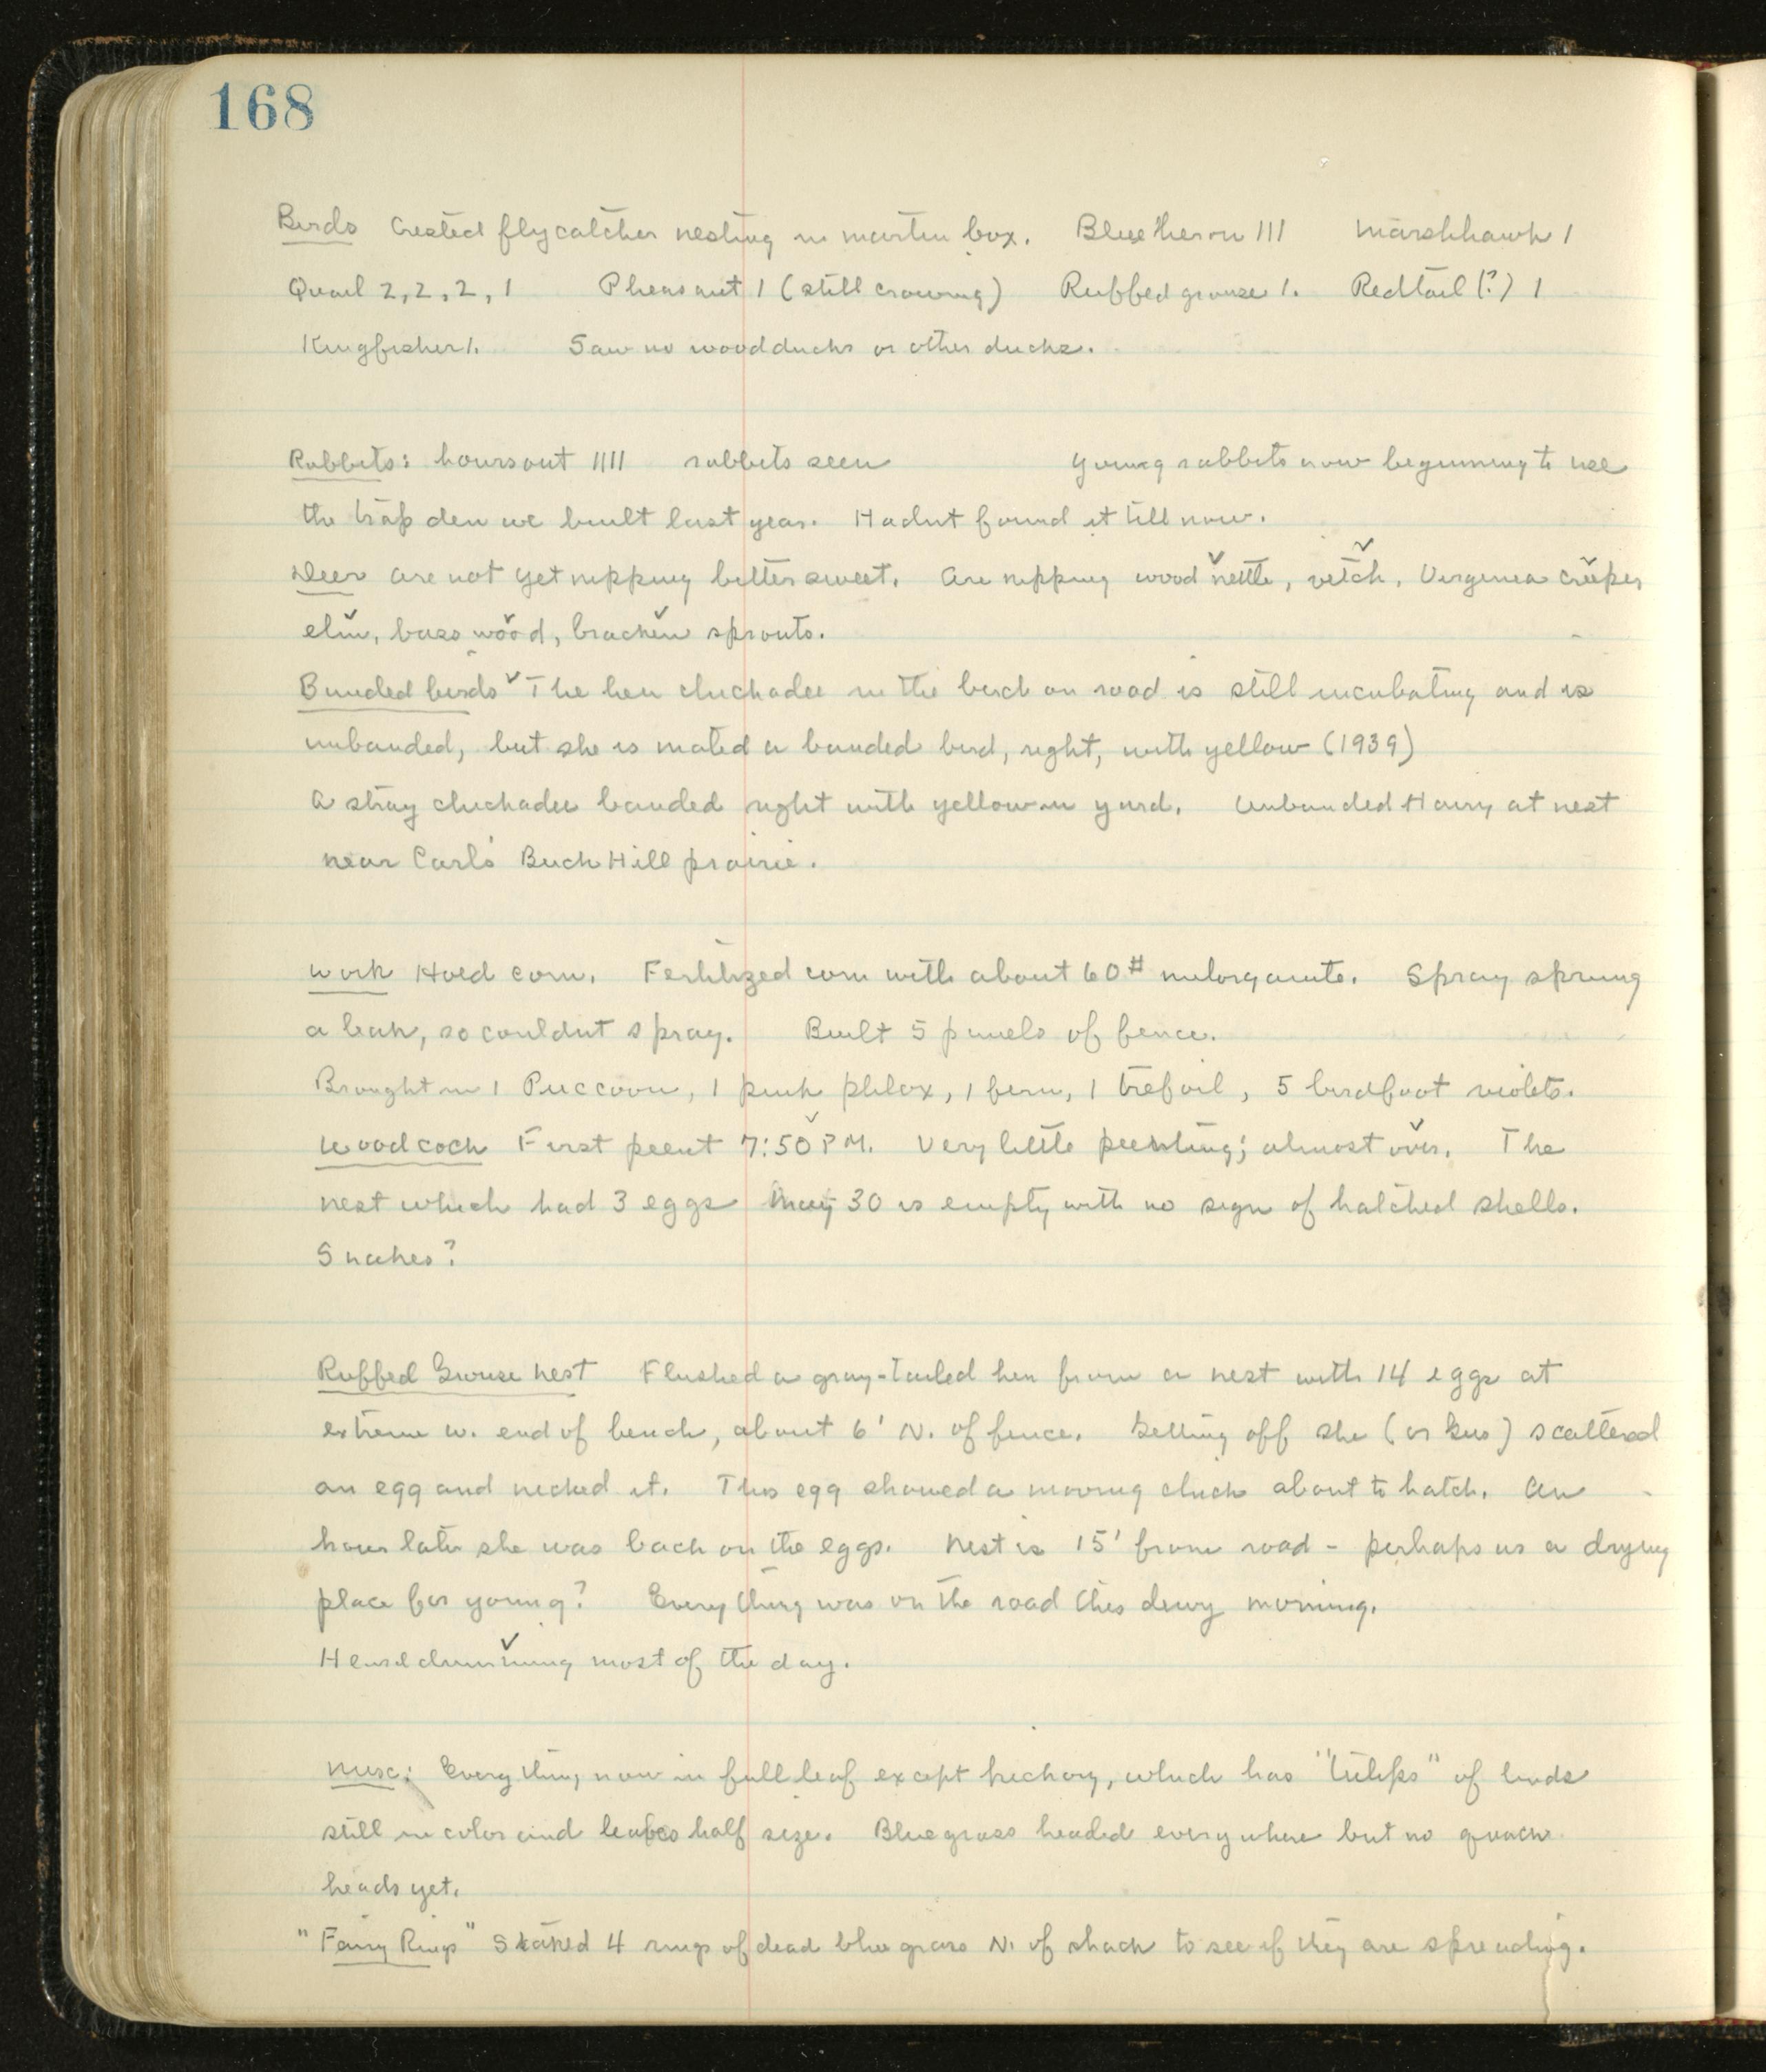 168
Birds Crested flycatcher nesting in martin box. Blue heron 111 Marshhawk 1
Quail 2, 2, 2, 1 Pheasant 1 (still crowing) Ruffed grouse 1. Redtail (?) 1
Kingfisher 1. Saw no wood ducks or other ducks.
Rabbits: hours out 1111 rabbits seen Young rabbits now beginning to use
the trap den we built last year. Hadnt found it till now.
Deer are not yet nipping bittersweet. Are nipping wood nettle, vetch, Virginia creeper
elm, basswood, bracken sprouts.
Banded birds The hen chickadee in the birch on road is still incubating and is
unbanded, but she is mated a banded bird, right, with yellow (1939)
A stray chickadee banded right with yellow in yard. Unbanded Hairy at nest
near Carl's Buck Hill prairie.
Work Hoed corn. Fertilized corn with about 60# milorganite. Spray sprung
a leak, so couldnt spray. Built 5 panels of fence.
Brought in 1 Puccoon, 1 pink phlox, 1 fern, 1 trefoil, 5 birdfoot violets.
Woodcock First peent 7:50 PM. Very little peenting; almost over. The
nest which had 3 eggs May 30 is empty with no sign of hatched shells.
Snakes?
Ruffed Grouse nest Flushed a gray-tailed hen from a nest with 14 eggs at
extreme w. end of bench, about 6' N. of fence. Getting off she (or Gus) scattered
an egg and nicked it. This egg showed a moving chick about to hatch. An
hour later she was back on the eggs. Nest is 15' from road - perhaps as a drying
place for young? Everything was on the road this dewy morning.
Heard drumming most of the day.
Misc: Everything now in full leaf except hickory, which has "tulips" of buds
still in color and leaves half size. Bluegrass headed everywhere but no quack
heads yet.
"Fairy Rings" Staked 4 rings of dead blue grass N. of shack to see if they are spreading.